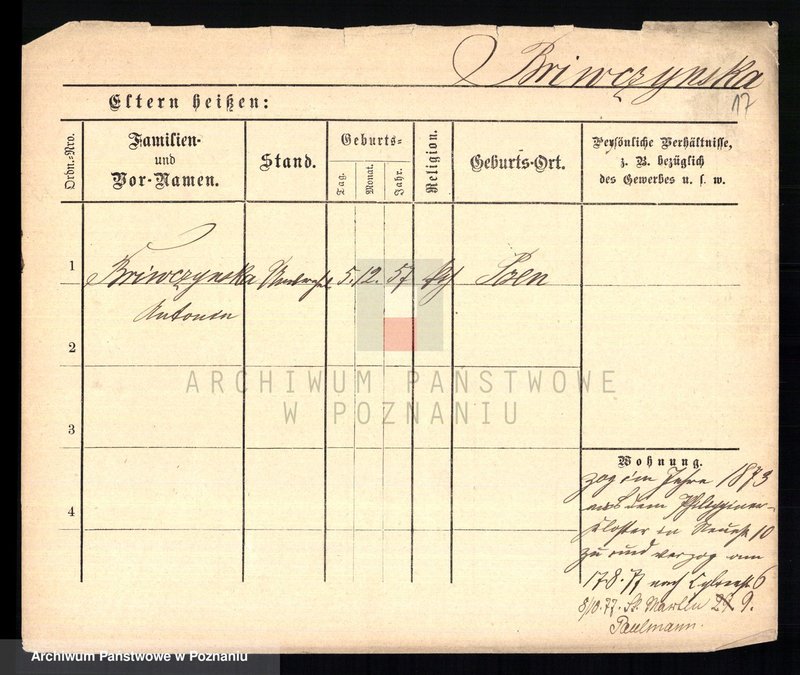 Briwczynska
17
Eltern heißen:
Ordn.-Nro.
Familien-
und
Vor-Namen.
Stand.
Geburts-
Tag.
Monat.
Jahr.
Religion.
Geburts-Ort.
Persönliche Verhältnisse,
z. B. bezüglich
des Gewerbes u. s. w.
1 Briwczynska 5. 12. 57
Antonin
2
3
4
ARCHIWUM PAŃSTWOWE
W POZNANIU
Wohnung.
zog im Jahre 1873
aus dem Philippiner-
kloster in 10
zu und verzog am
17 8. 77 nach 6
8/10. 77. St. Martin 9.
Paulmann.
Archiwum Państwowe w Poznaniu